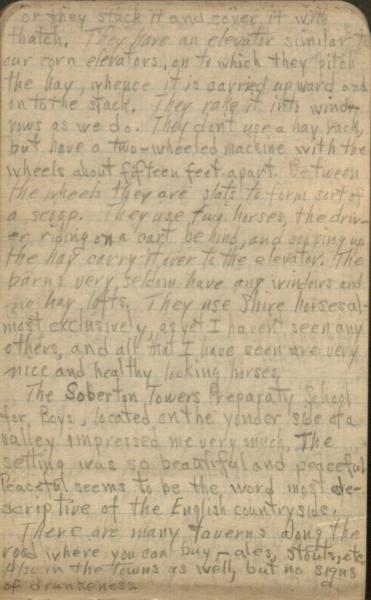 or they stack it and cover it with
thatch. They have an elevator similar to
our corn elevators, on to which they pitch
the hay, whence it is carried upward and
on to the stack. They rake it into wind-
rows as we do. They don't use a hay rack,
but have a two-wheeled machine with the
wheels about fifteen feet apart. Between
the wheels they are slats to form sort of
a scoop. They use two horses, the driv-
er riding on a cart behind, and scooping up
the hay carry it over to the elevator. The
barns very seldom have any windows and
no hay lofts. They use Shire horses al-
most exclusively, as yet I haven't seen any
others, and all that I have seen are very
nice and healthy looking horses.
The Soberton Towers Preparaty School
for Boys, located on the yonder side of a
valley impressed me very much. The
setting was so beautiful and peaceful.
Peaceful seems to be the word most de-
scriptive of the English countryside.
There are many taverns along the
road where you can buy - ales, stouts, etc.
Also in the towns as well, but no signs
of drunkeness.